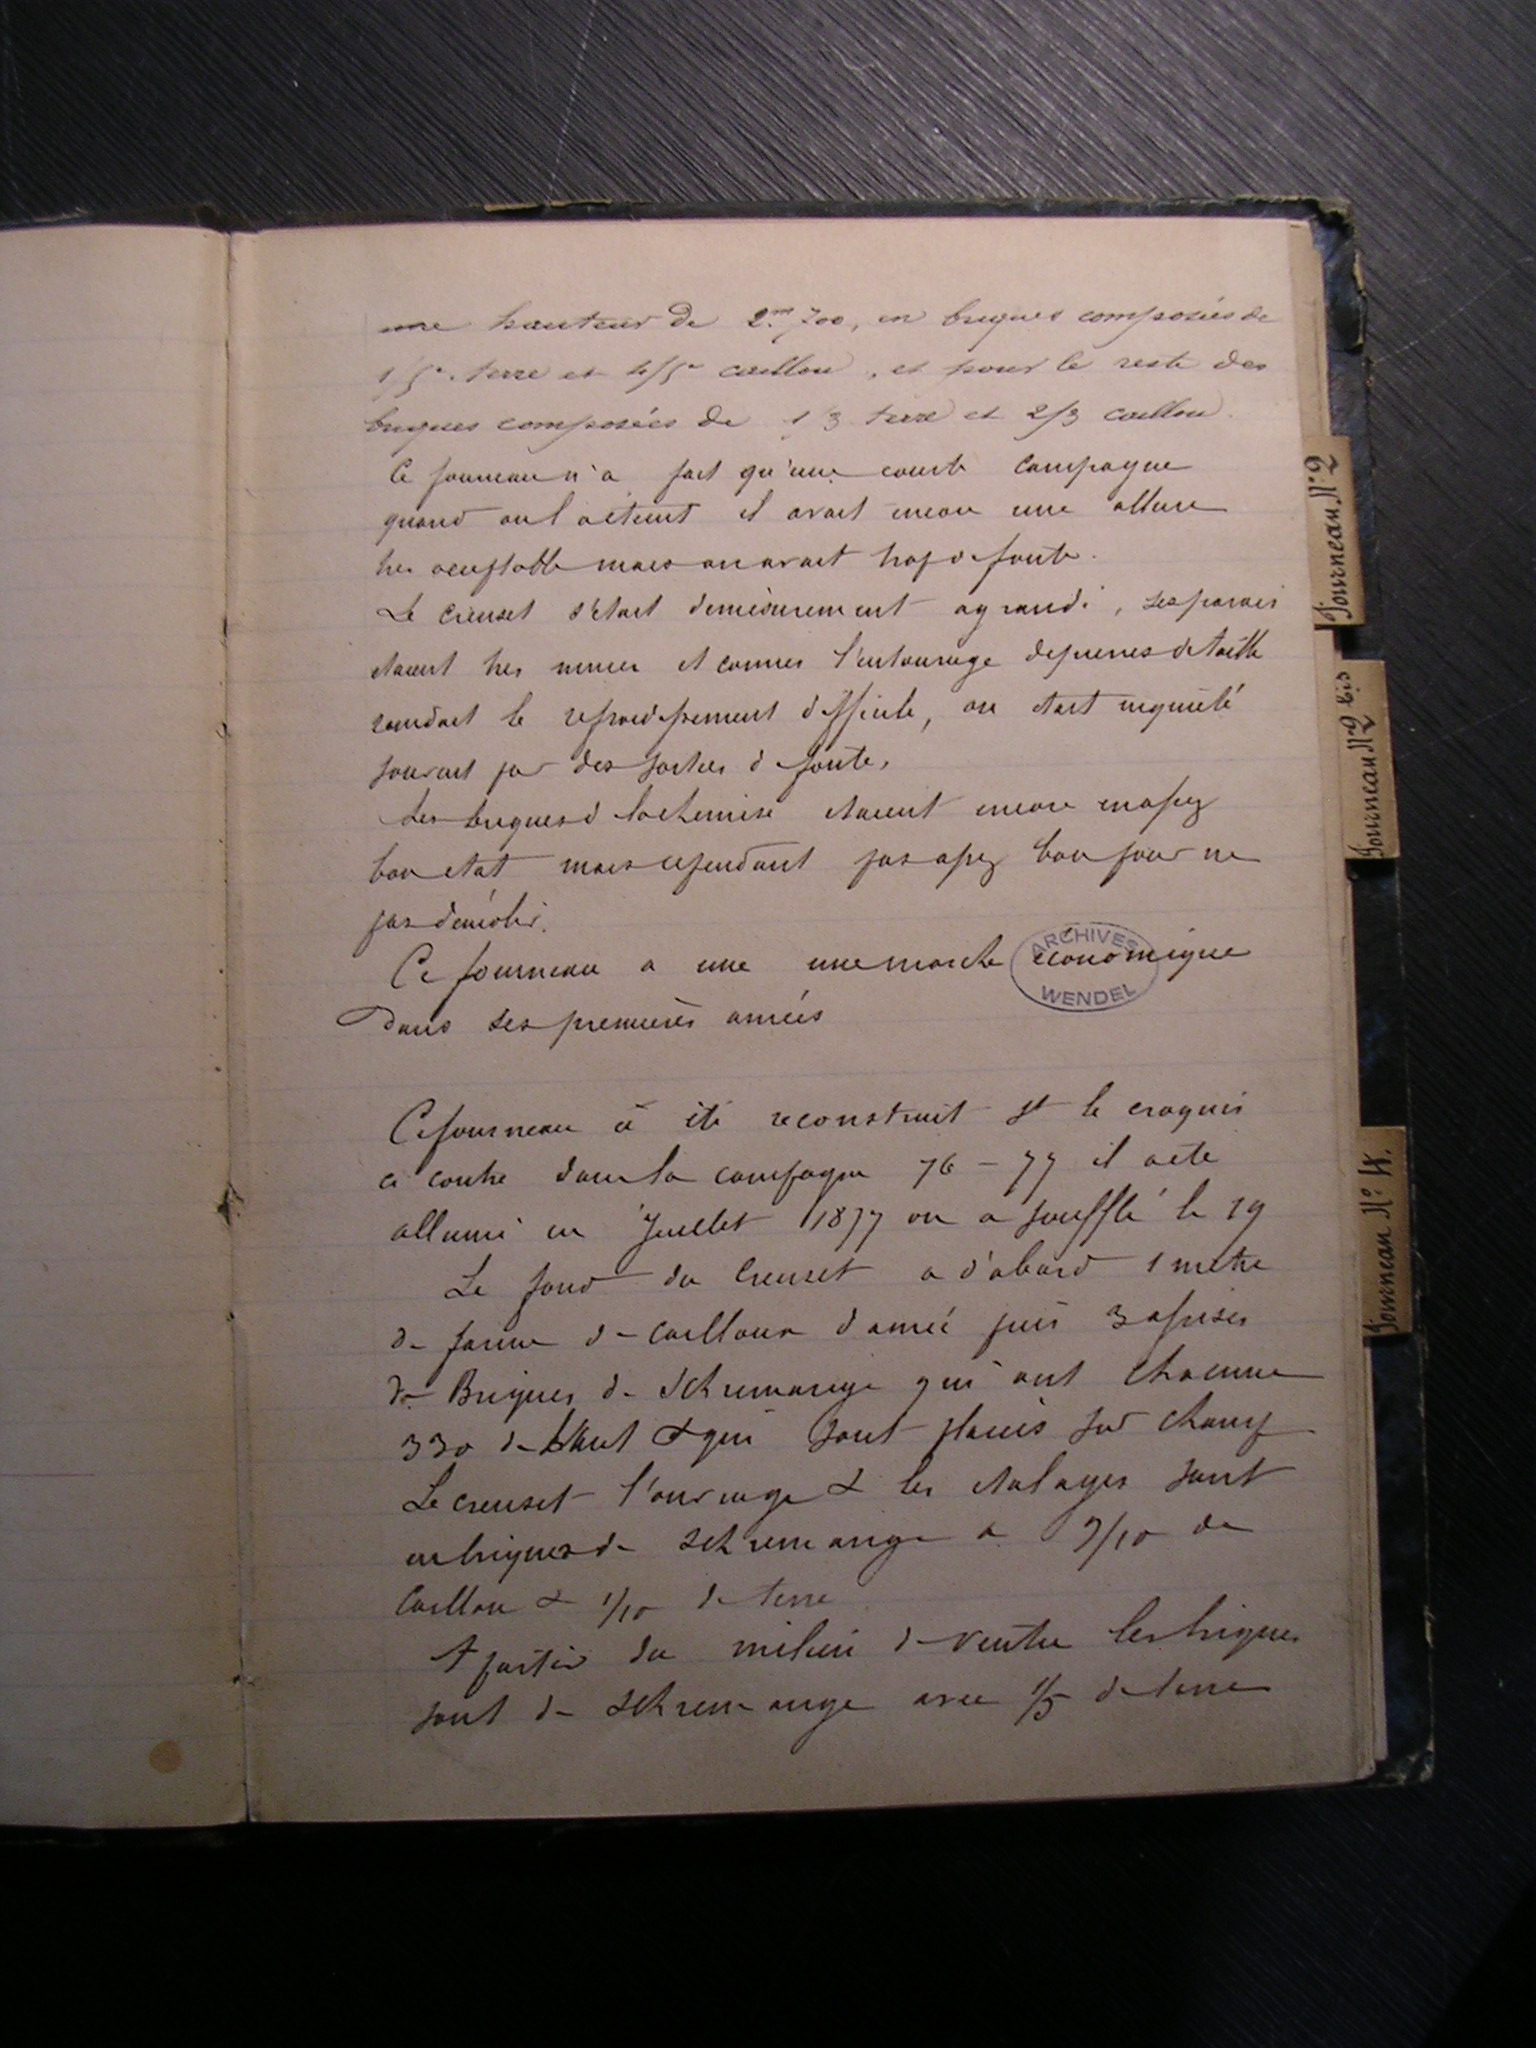 une hauteur de 2.m700, en briques composées de
1/5e terre et 4/5e caillou, et pour le reste des
briques composées de 1/3 terre et 2/3 caillou.
Ce fourneau n'a fait qu'une courte campagne
quand on l'a éteint il avait encore une allure
très acceptable mais on avait trop de fonte.
Le creuset s'était démesurément agrandi, ses parois
étaient très minces et comme l'entourage de pierres de taille
rendait le refroidissement difficile, on était inquiété
souvent par des sorties de fonte.
Les briques de la chemise étaient encore en assez
bon état mais cependant pas assez bon pour ne
pas démolir.
Ce fourneau a une une marche économique
dans ses premières années
ARCHIVES
WENDEL
Ce fourneau à été reconstruit st le croquis
ci contre dans la campagne 76 - 77 il a ete
allumé en Juillet 1877 on a soufflé le 19
Le fond du Creuset a d'abord 1 metre
de farine de cailloux damée puis 3 assises
de Briques de Schremange qui ont Chacune
330 de haut & qui sont placés sur champ
Le creuset l'ouvrage & les etalages sont
en briques de Schremange a 9/10 de
Caillou & 1/10 de terre
A partir du milieu de ventre les briques
sont de Schremange avec 1/5 de terre
Fourneau N° 2
Fourneau N° 2 bis
Fourneau N° 4.